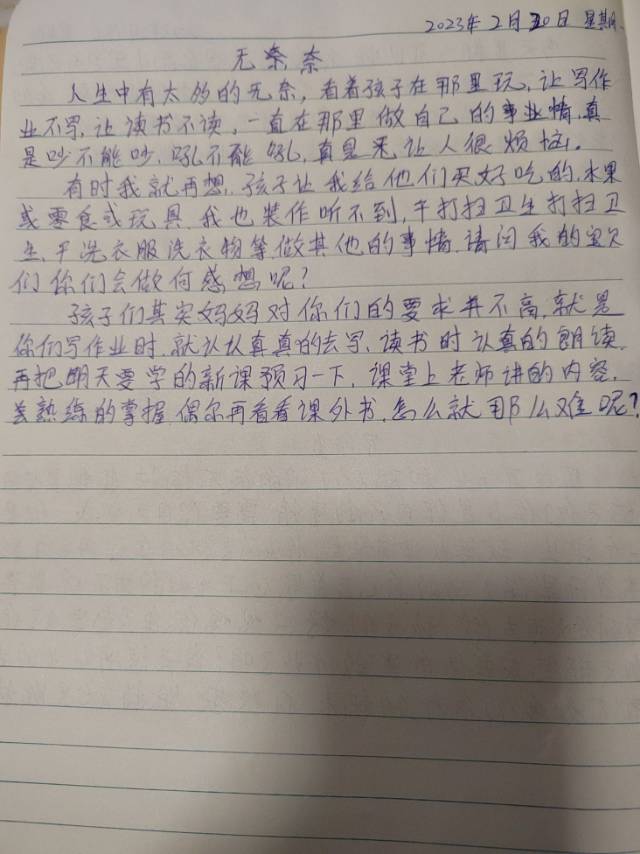 2023年2月20日 星期
无奈奈
人生中有太多的无奈，看着孩子在那里玩，让写作
业不写，让读书不读，一直在那里做自己的事业情，真
是吵不能吵，吼不能吼，真是悉让人很烦恼。
有时我就再想，孩子让我给他们买好吃的，水果
或零食或玩具，我也装作听不到，干打扫卫生打扫卫
生，干洗衣服洗衣物等做其他的事情，请问我的宝贝
们你们会做何感想呢？
孩子们其实妈妈对你们的要求并不高，就是
你们写作业时，就认认真真的去写，读书时认真的朗读，
再把明天要学的新课预习一下，课堂上老师讲的内容，
熟练的掌握，偶尔再看看课外书，怎么就那么难呢？